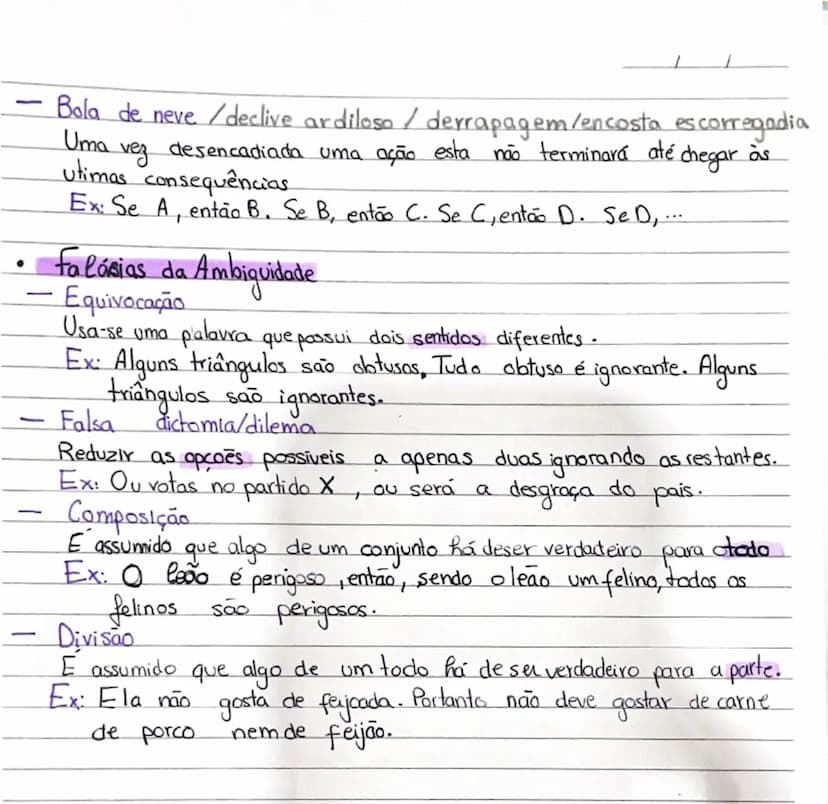 / /
— Bola de neve /declive ardiloso / derrapagem/encosta escorregadia
Uma vez desencadiada uma ação esta não terminará até chegar às
utimas consequências
Ex: Se A, então B. Se B, então C. Se C, então D. Se D, ...
• Falásias da Ambiguidade
— Equivocação
Usa-se uma palavra que possui dois sentidos diferentes.
Ex: Alguns triângulos são obtusos. Tudo obtuso é ignorante. Alguns
triângulos são ignorantes.
— Falsa dictomia/dilema
Reduzir as opçoẽs possíveis a apenas duas ignorando as restantes.
Ex: Ou votas no partido X, ou será a desgraça do país.
— Composição
É assumido que algo de um conjunto há de ser verdadeiro para o todo
Ex: O leão é perigoso, então, sendo o leão um felino, todos os
felinos são perigosos.
— Divisão
É assumido que algo de um todo há de ser verdadeiro para a parte.
Ex: Ela não gosta de feijoada. Portanto não deve gostar de carne
de porco nem de feijão.